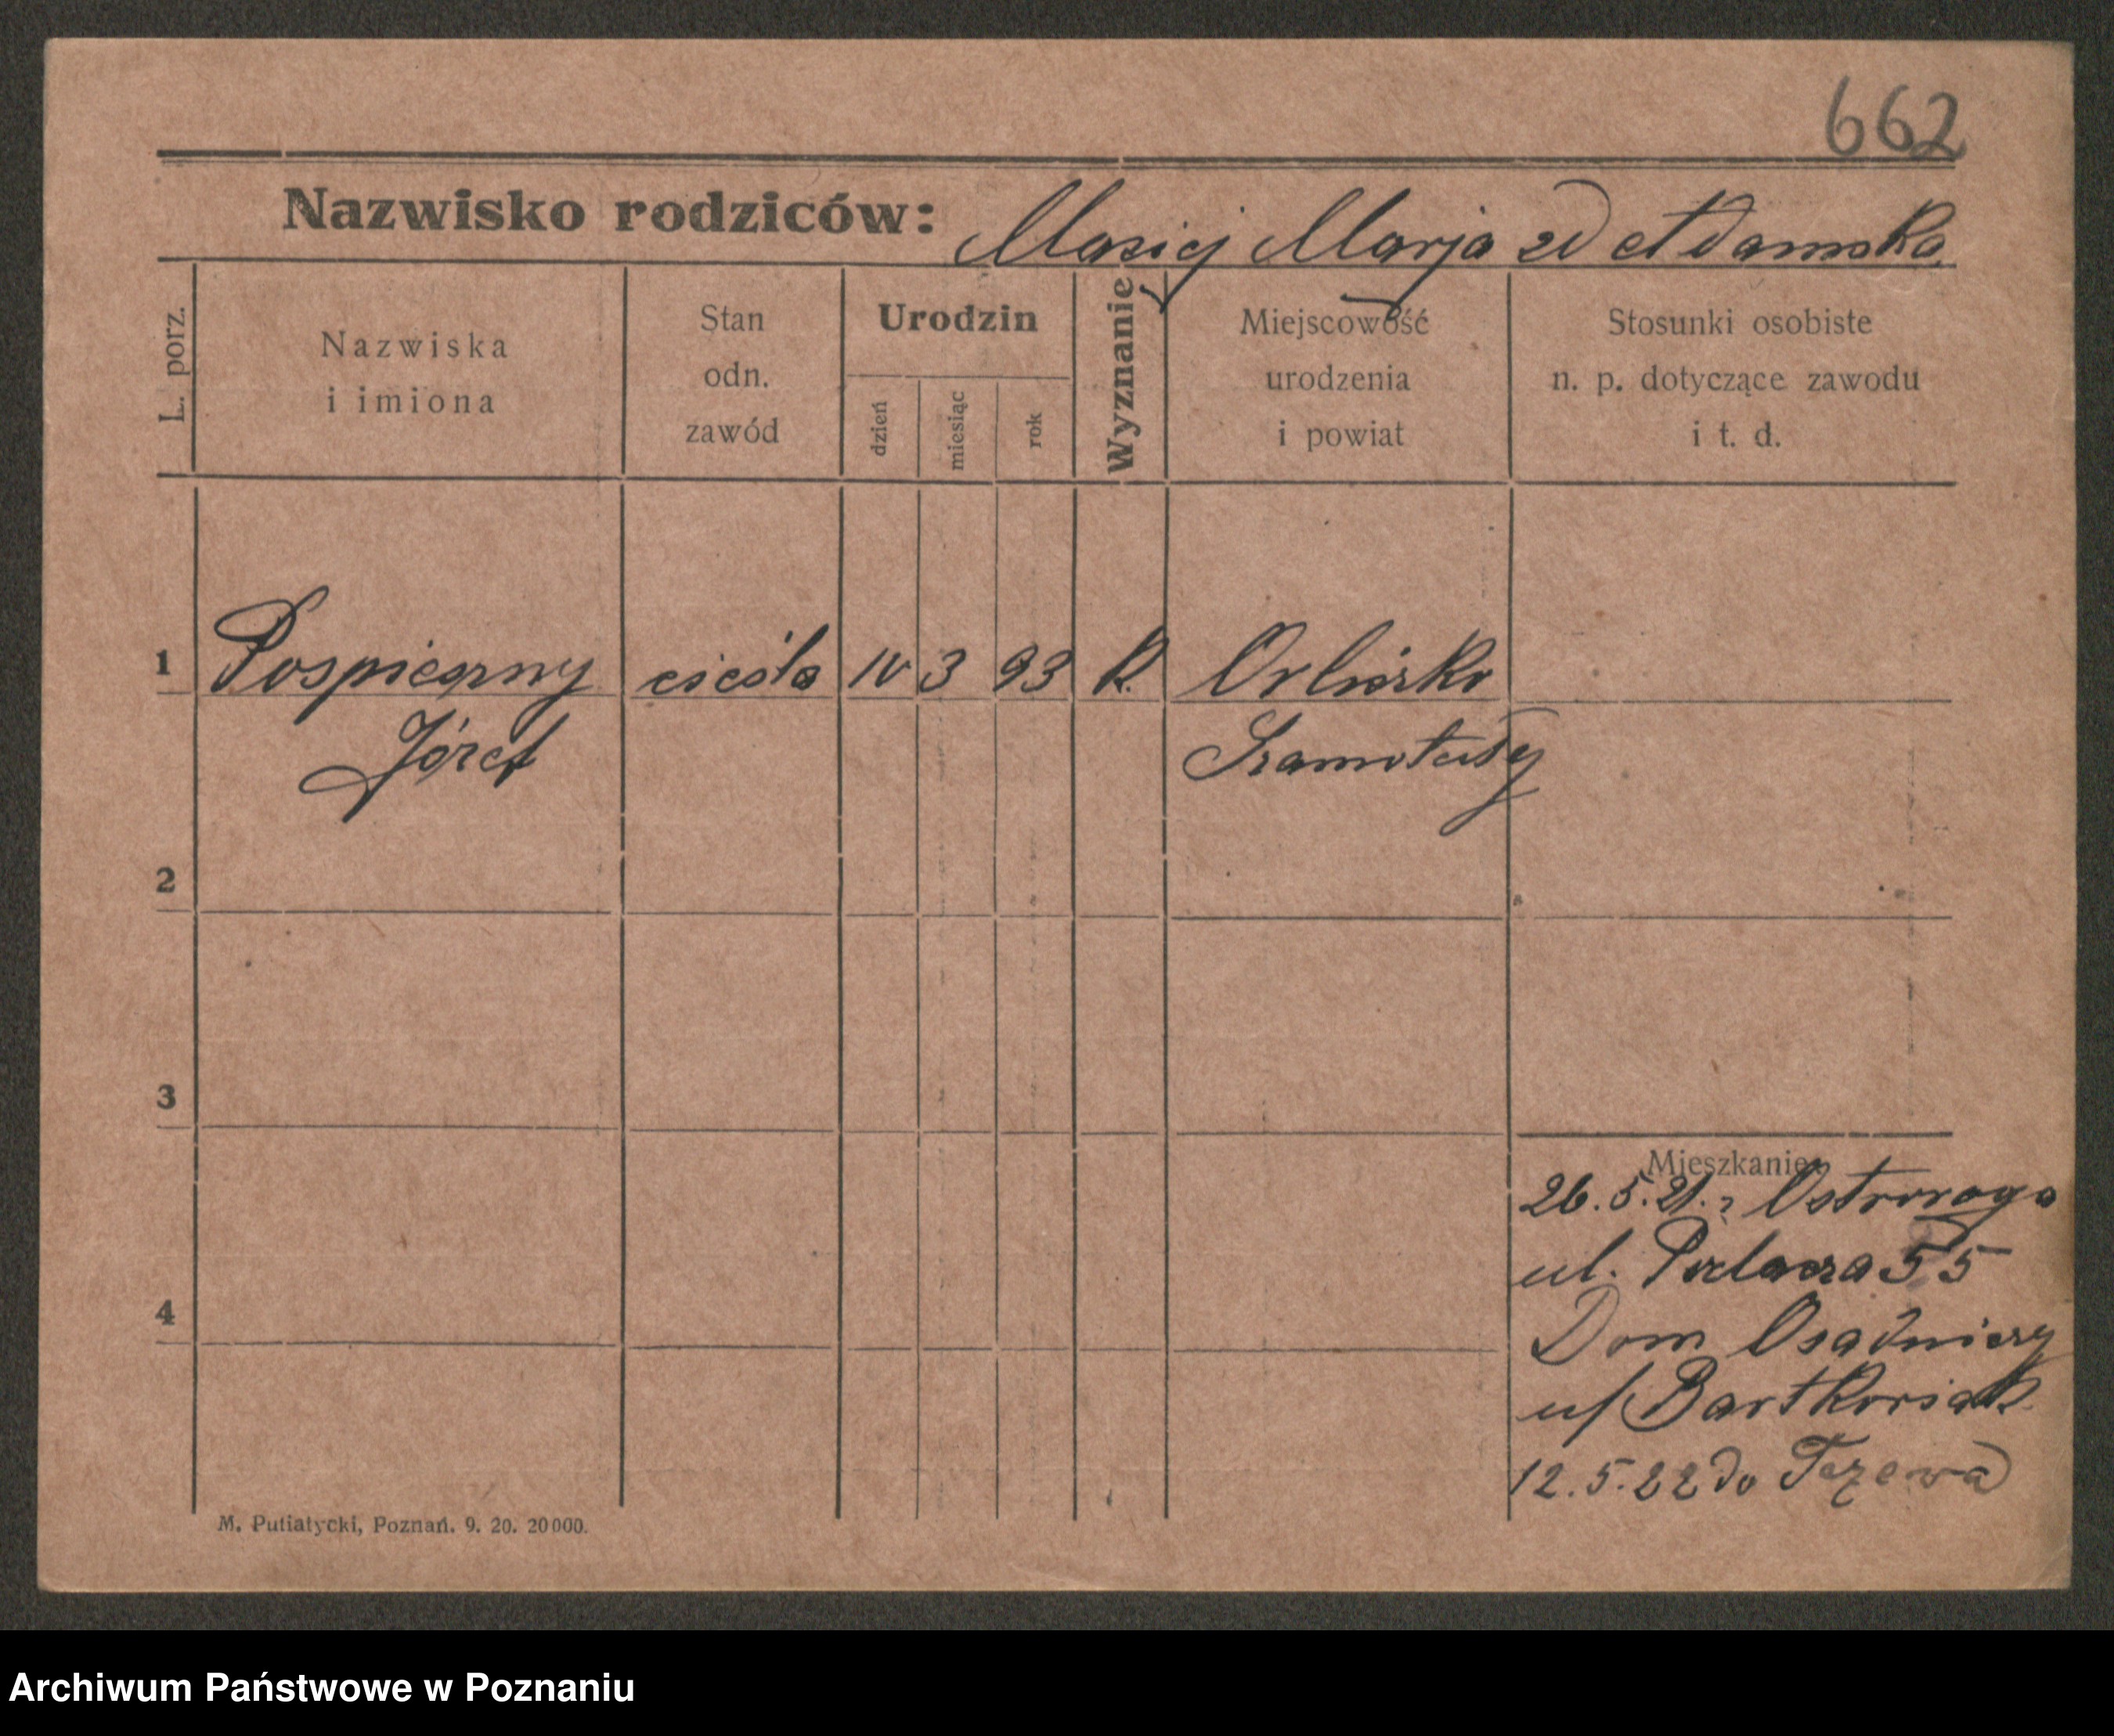 662
Nazwisko rodziców: Maciej Marja zd Adamska
L. porz.
Nazwiska
i imiona
Stan
odn.
zawód
Urodzin
dzień
miesiąc
rok
Wyznanie
Miejscowość
urodzenia
i powiat
Stosunki osobiste
n. p. dotyczące zawodu
i t. d.
1 Pospieszny cieśla IV 3 93 k.
Józef Szamotuły
2
3
Mieszkanie
26. 5. 21. z Ostroroga
ul. 55
4
Dom Osadniczy
u/ Bartkowiak
12. 5. 22 do Tczewa
M. Putiatycki, Poznań. 9. 20. 20000.
Archiwum Państwowe w Poznaniu